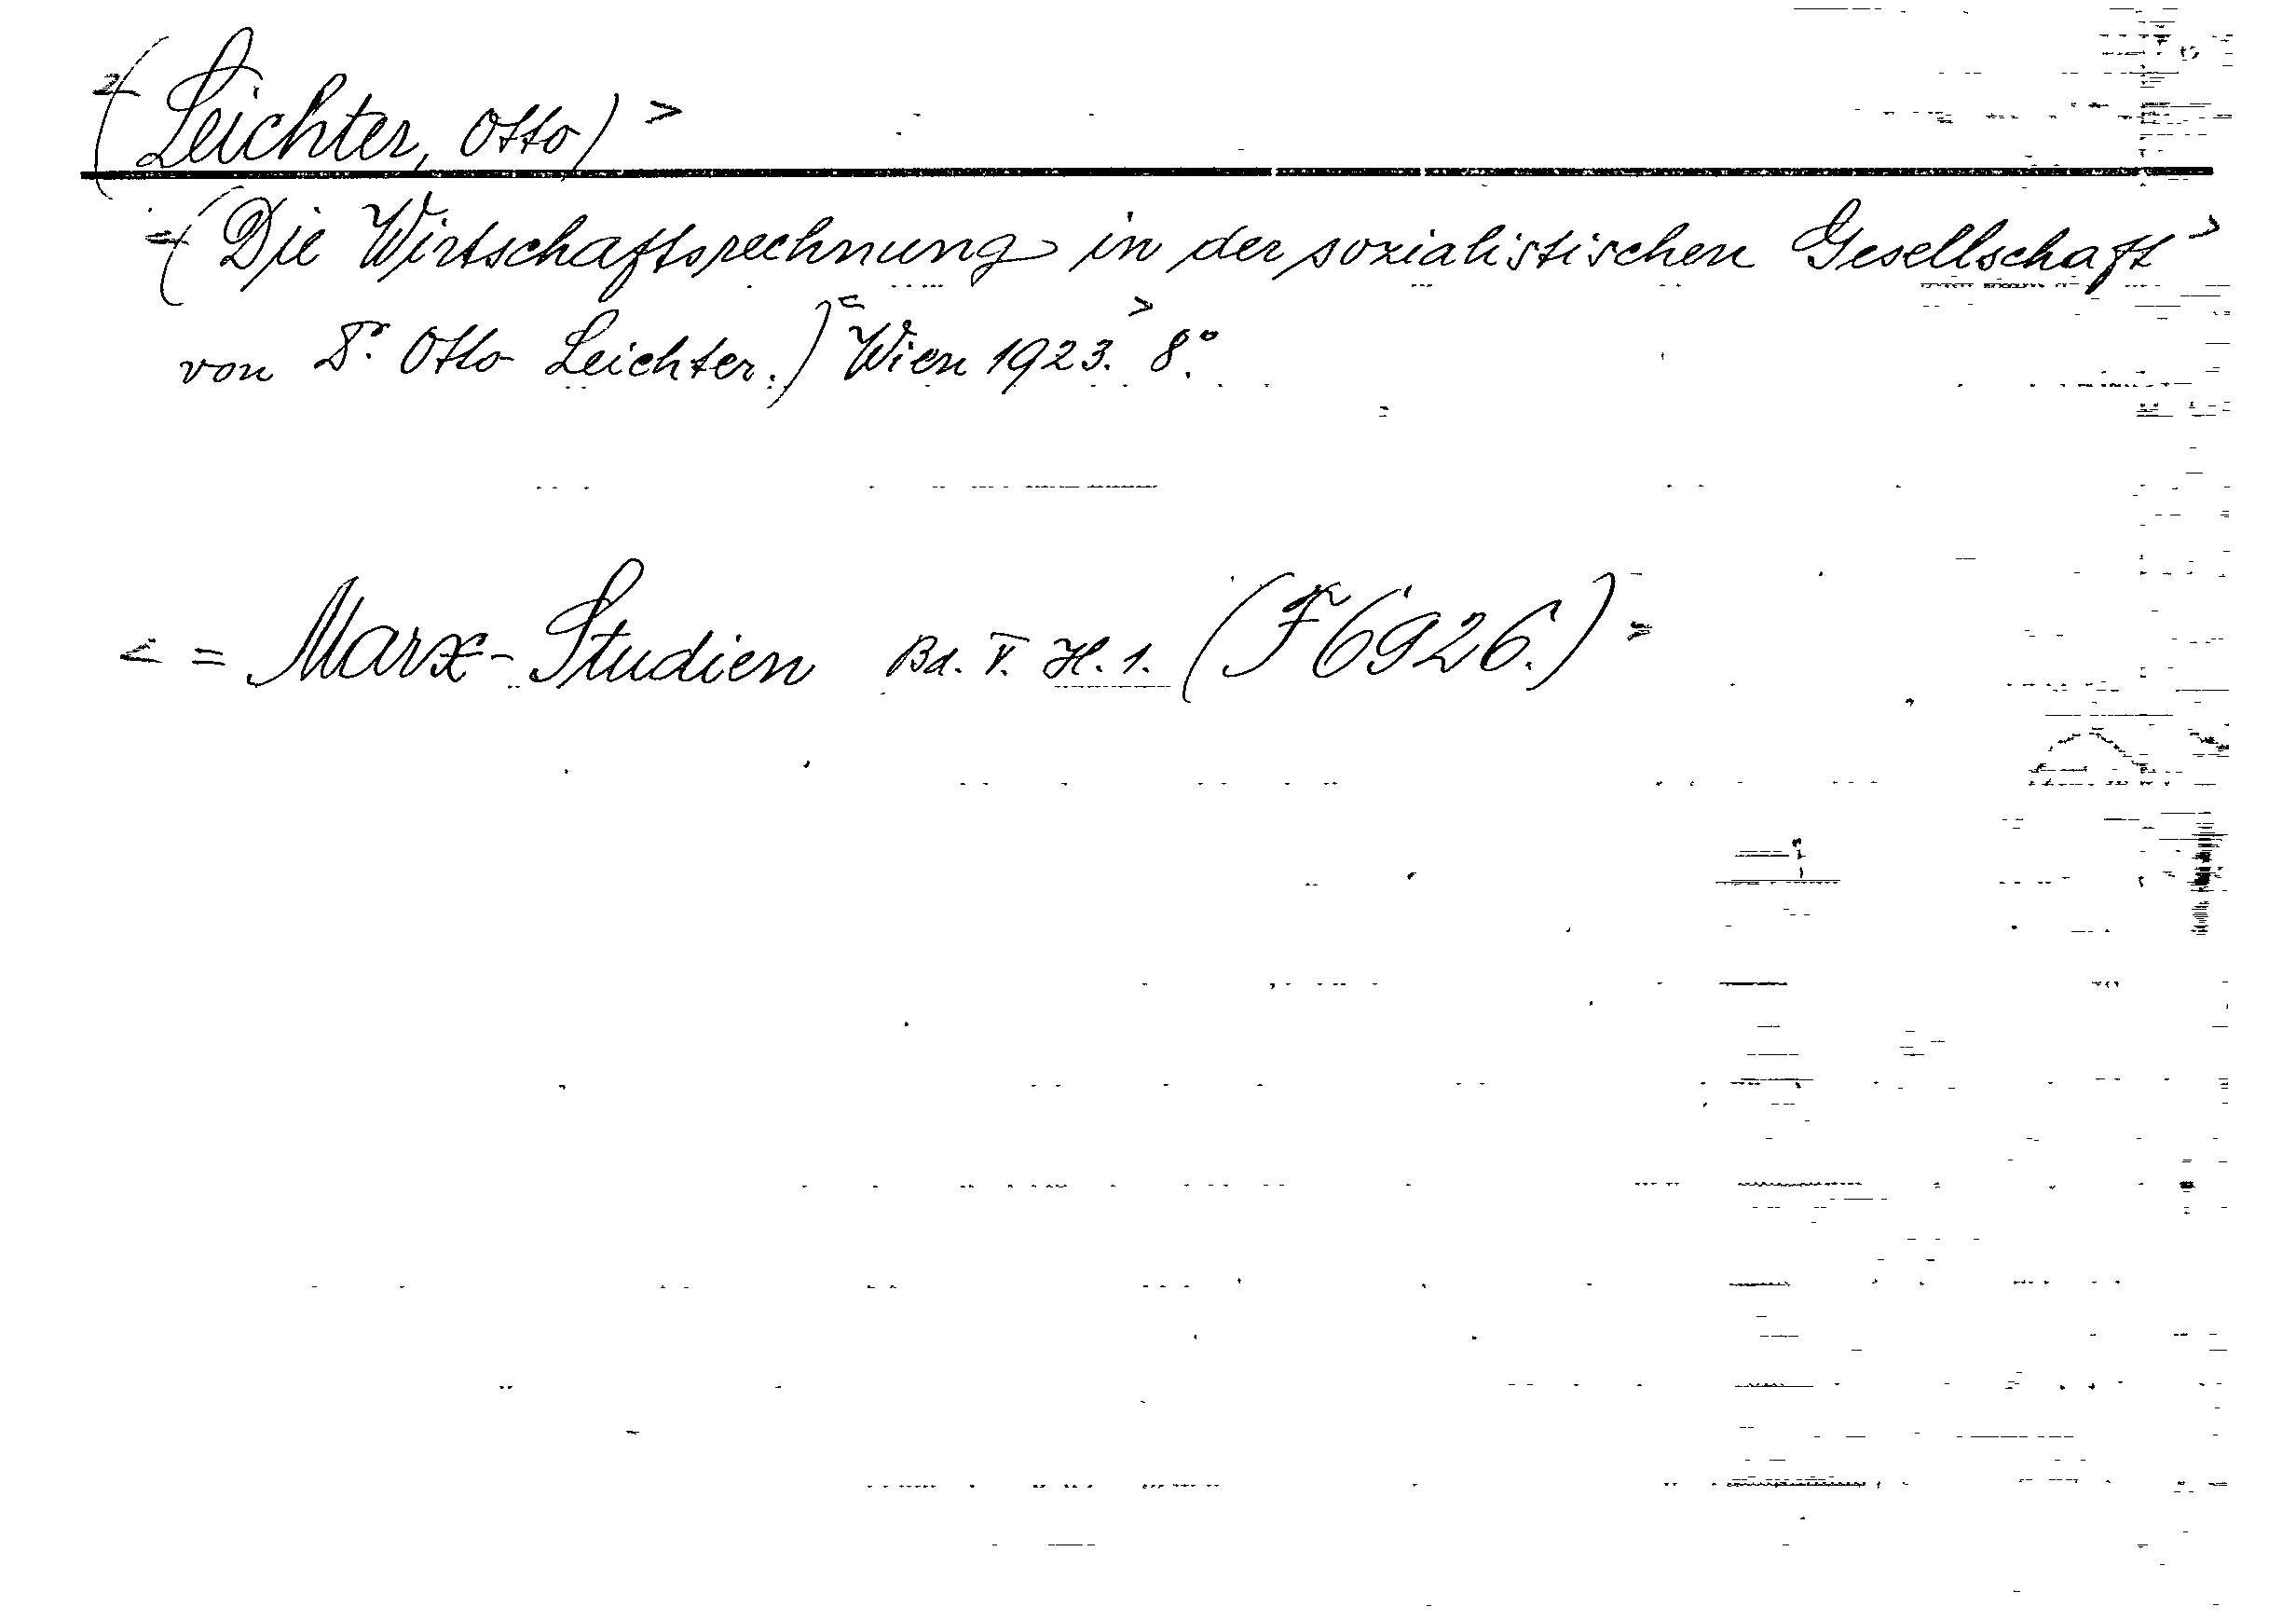 (Leichter, Otto) >
=(Die Wirtschaftsrechnung in der sozialistischen Gesellschaft >
von Dr. Otto Leichter.) < Wien 1923. > 8°.
< = Marx-Studien Bd. V. H. 1. (F6926.) >